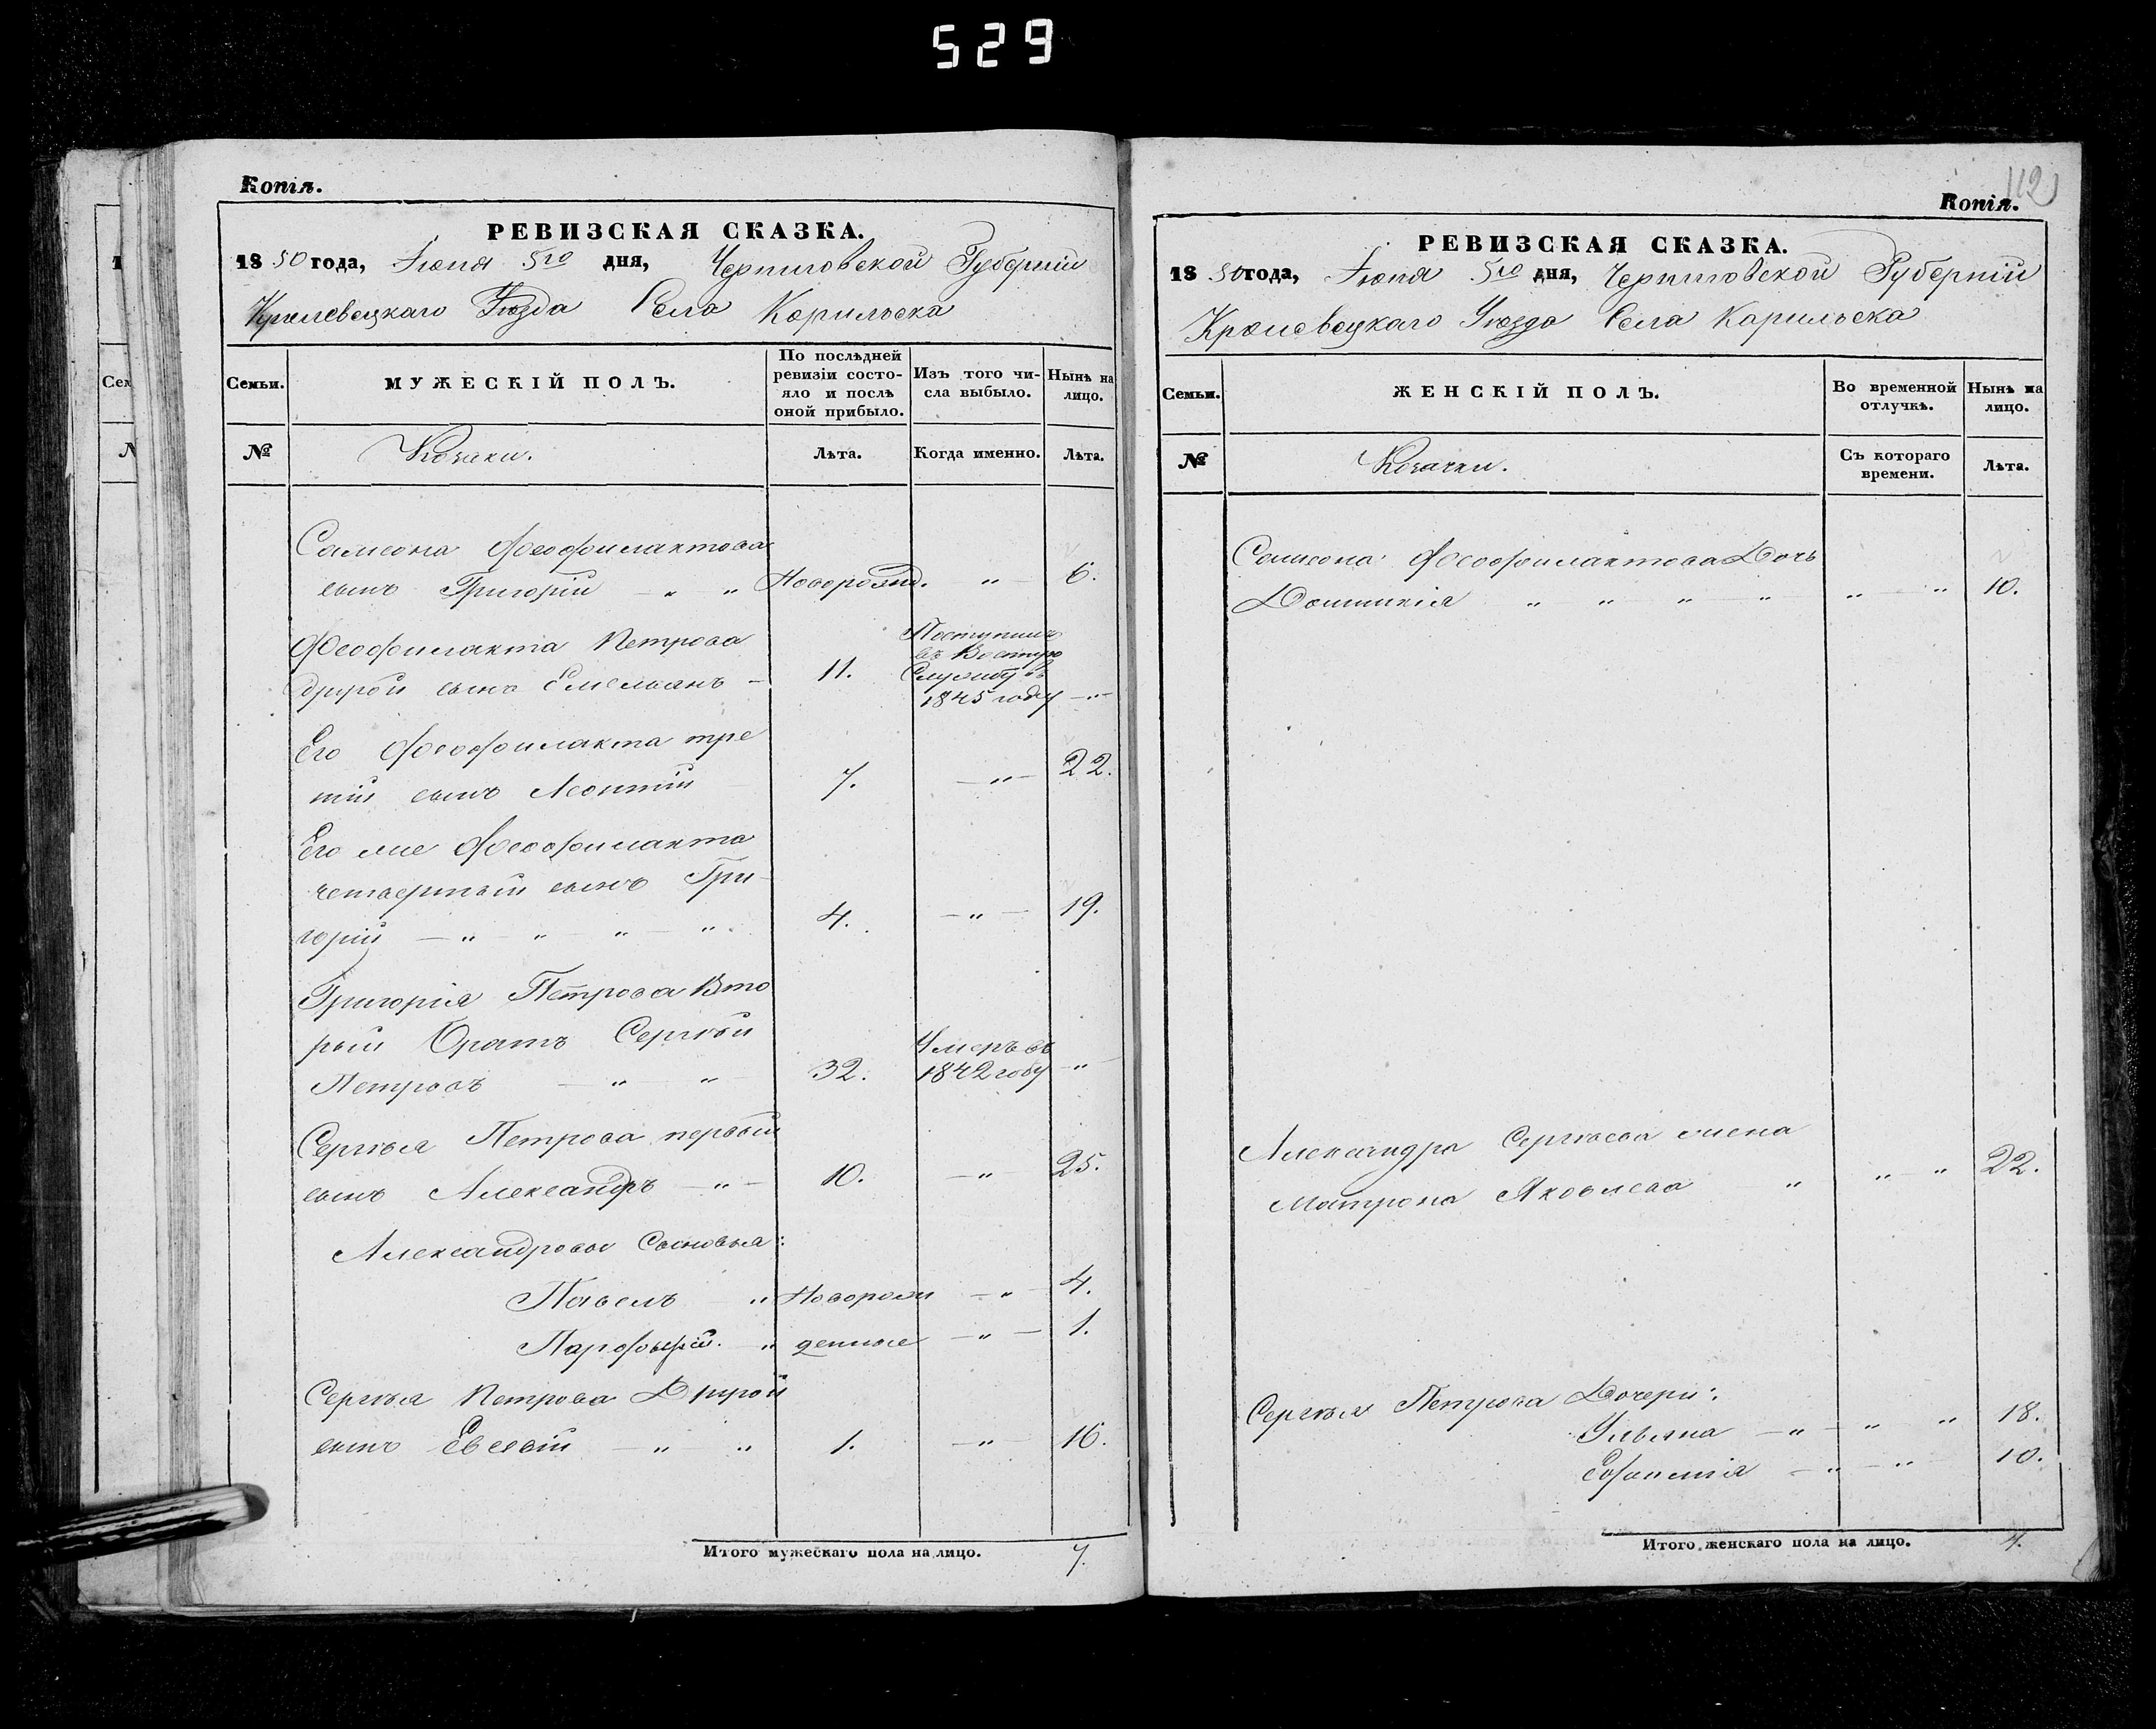 529
Копія.
РЕВИЗСКАЯ СКАЗКА.
1850 года, Іюня 5го дня, Черниговской Губерніи
Кролевецкаго Уѣзда Села Карильска
Семьи.
МУЖЕСКІЙ ПОЛЪ.
По послѣдней ревизіи состо-яло и послѣ оной прибыло.
Изъ того чи-сла выбыло.
Нынѣ на лицо.
№
Козаки.
Лѣта.
Когда именно.
Лѣта.
Самсона Феофилактова
сынъ Григорій — „ „ Новорожд. „ 6.
Феофилакта Петрова
другой сынъ Емельянъ — 11. Поступилъ
въ Воен.
Службу въ
1845 году — „ —
Его Феофилакта тре
тій сынъ Леонтій 7. — „ — 22.
Его же Феофилакта
четвертый сынъ Гри-
горій — „ — „ — „ — „ 4. — „ — 19.
Григорія Петрова Вто
рый Братъ Сергѣй
Петровъ — „ — „ — 32. Умеръ въ
1842 году — „ —
Сергѣя Петрова первый
сынъ Александръ — „ — 10. — „ — 25.
Александровы Сыновья:
Павелъ — „ Новорож — „ — 4.
Парфирій. — „ денные — „ — 1.
Сергѣя Петрова Другой
сынъ Евсевій — „ — „ 1. — „ — 16.
Итого мужескаго пола на лицо. 7.
112
Копія.
РЕВИЗСКАЯ СКАЗКА.
1850 года, Іюня 5го дня, Черниговской Губерніи
Кролевецкаго Уѣзда Села Карильска
Семьи.
ЖЕНСКІЙ ПОЛЪ.
Во временной отлучкѣ.
Нынѣ на лицо.
№
Козачки.
Съ котораго времени.
Лѣта.
Самсона Феофилактова Дочь
Домникія „ „ „ „ „ „ 10.
Александра Сергѣева жена
Матрона Яковлева „ „ „ 22.
Сергѣя Петрова Дочери:
Ульяна — „ — „ „ 18.
Евфимія — „ — „ — 10.
Итого женскаго пола на лицо. 4.